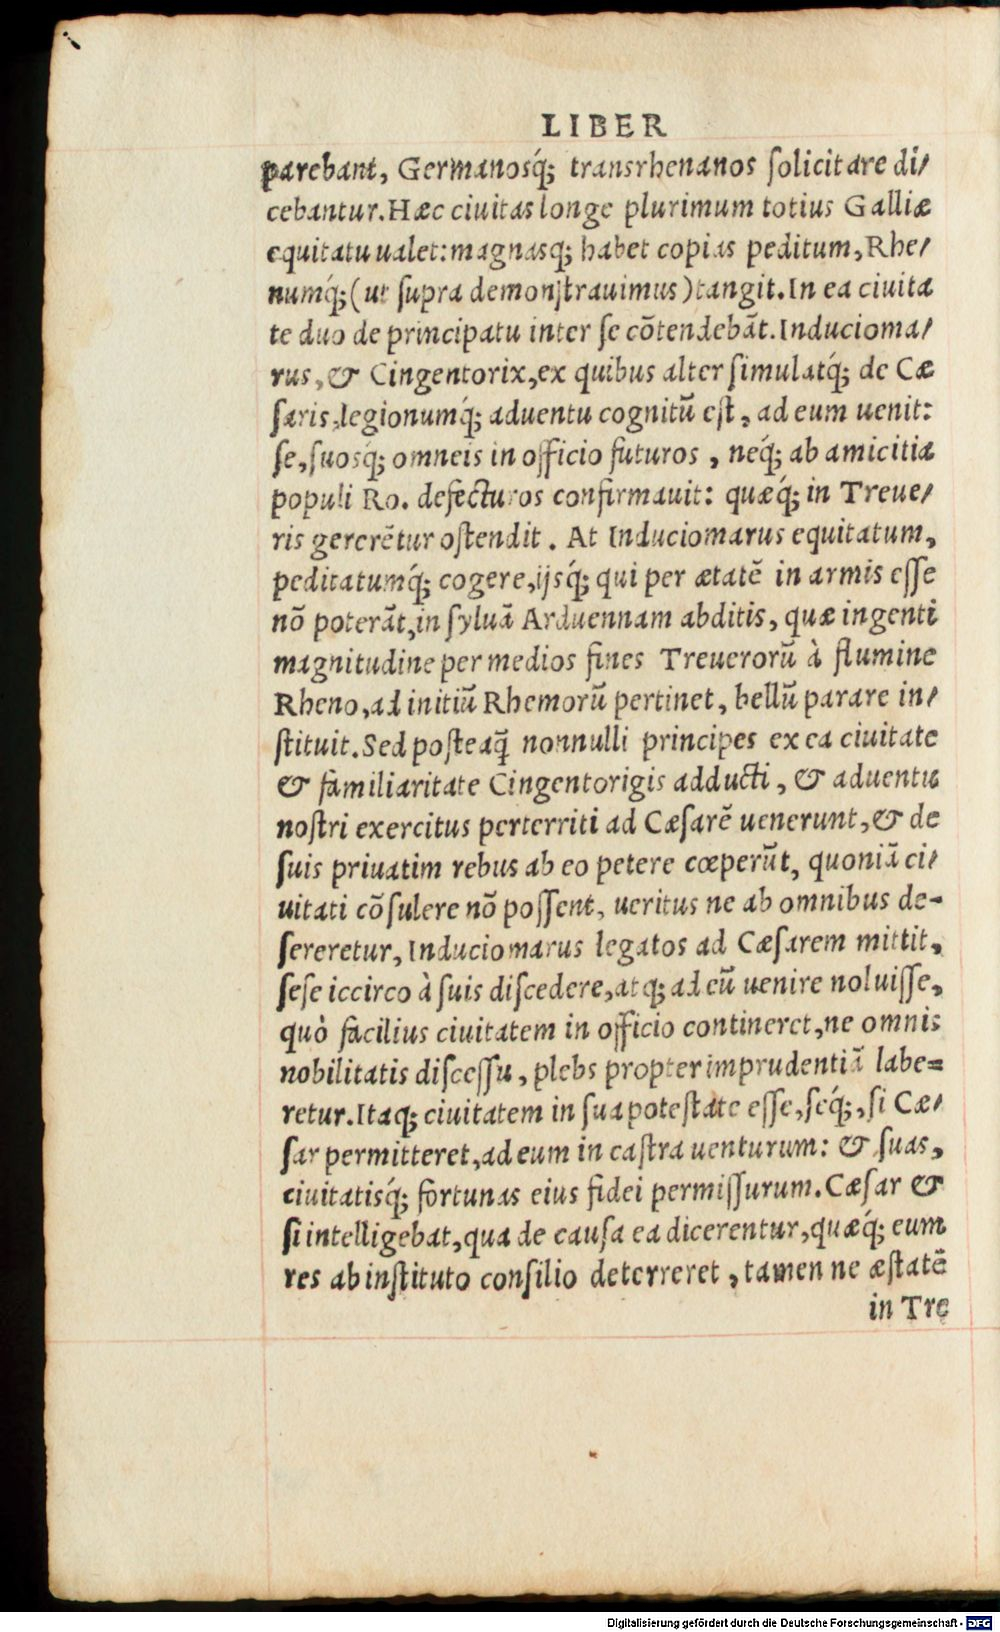 LIBER
parebant, Germanosq́; transrhenanos ſolicitare di/
cebantur. Hæc ciuitas longe plurimum totius Galliæ
equitatu ualet: magnasq; habet copias peditum, Rhe/
numq́; (ut ſupra demonſtrauimus) tangit. In ea ciuita
te duo de principatu inter ſe cōtendebāt. Inducioma/
rus, & Cingentorix, ex quibus alter ſimulatq́; de Cæ
ſaris, legionumq́; aduentu cognitū eſt, ad eum uenit:
ſe, ſuosq́; omneis in officio futuros, neq́; ab amicitia
populi Ro. defecturos confirmauit: quæq́; in Treue/
ris gererētur oſtendit. At Induciomarus equitatum,
peditatumq́; cogere, ijsq́; qui per ætatē in armis eſſe
nō poterāt, in ſyluā Arduennam abditis, quæ ingenti
magnitudine per medios fines Treuerorū à flumine
Rheno, ad initiū Rhemorū pertinet, bellū parare in/
ſtituit. Sed poſteaq̄ nonnulli principes ex ea ciuitate
& familiaritate Cingentorigis adducti, & aduentu
noſtri exercitus perterriti ad Cæſarē uenerunt, & de
ſuis priuatim rebus ab eo petere cœperūt, quoniā ci/
uitati cōſulere nō poſſent, ueritus ne ab omnibus de-
ſereretur, Induciomarus legatos ad Cæſarem mittit,
ſeſe iccirco à ſuis diſcedere, atq; ad eū uenire noluiſſe,
quò facilius ciuitatem in officio contineret, ne omnis
nobilitatis diſceſſu, plebs propter imprudentiā labe=
retur. Itaq; ciuitatem in ſua poteſtate eſſe, ſeq́;, ſi Cæ/
ſar permitteret, ad eum in caſtra uenturum: & ſuas,
ciuitatisq́; fortunas eius fidei permiſſurum. Cæſar &
ſi intelligebat, qua de cauſa ea dicerentur, quæq́; eum
res ab inſtituto conſilio deterreret, tamen ne æſtatē
in Tre
Digitalisierung gefördert durch die Deutsche Forschungsgemeinschaft - DFG